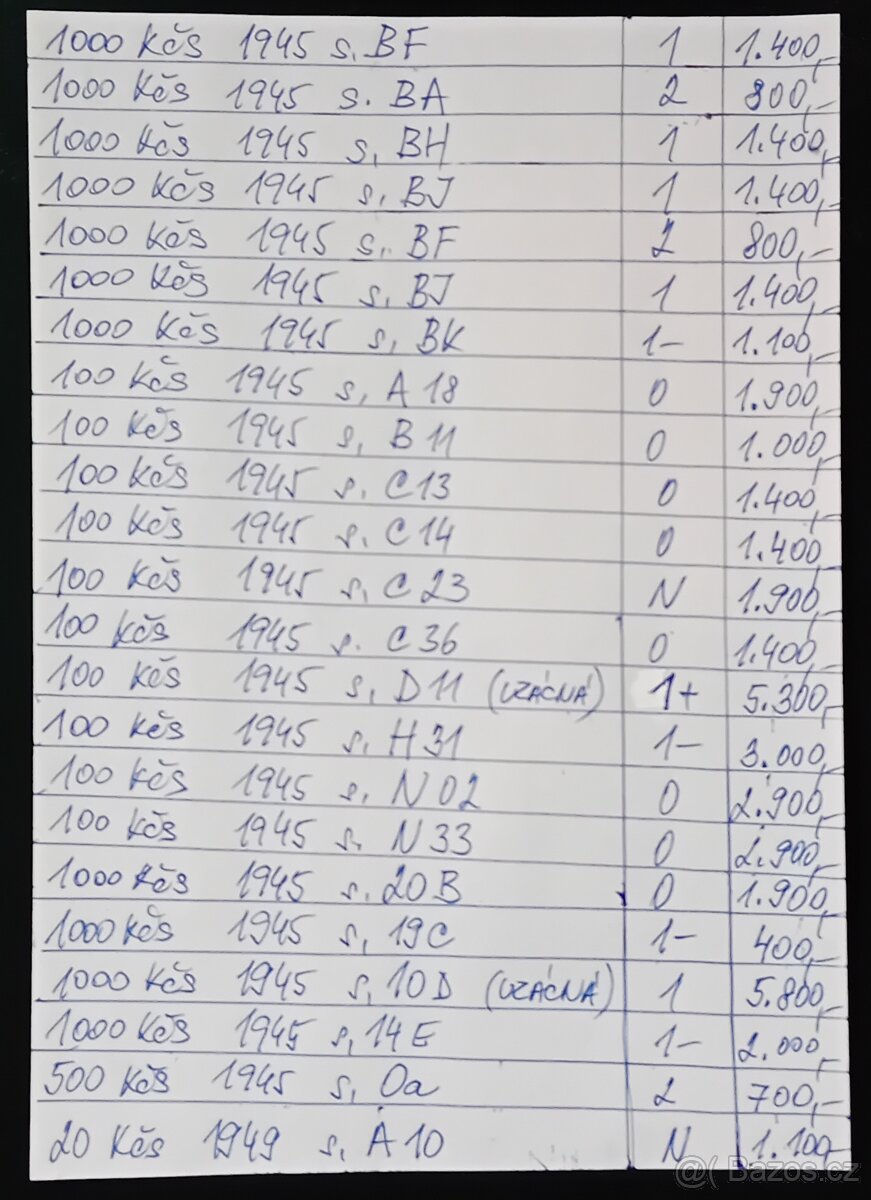 1000 Kčs 1945 s. BF 1 1.400,-
1000 Kčs 1945 s. BA 2 800,-
1000 Kčs 1945 s, BH 1 1.400,-
1000 Kčs 1945 s, BJ 1 1.400,-
1000 Kčs 1945 s. BF 2 800,-
1000 Kčs 1945 s, BJ 1 1.400,-
1000 Kčs 1945 s, BK 1- 1.100,-
100 Kčs 1945 s, A 18 0 1.900,-
100 Kčs 1945 s, B 11 0 1.000,-
100 Kčs 1945 s. C 13 0 1.400,-
100 Kčs 1945 s. C 14 0 1.400
100 Kčs 1945 s, C 23 N 1.900,-
100 Kčs 1945 s. C 36 0 1.400,-
100 Kčs 1945 s, D 11 (VZÁCNÁ) 1+ 5.300,-
100 Kčs 1945 s. H 31 1- 3.000,-
100 Kčs 1945 s, N 02 0 2.900,-
100 Kčs 1945 s. N 33 0 2.900,-
1000 Kčs 1945 s. 20 B 0 1.900,-
1000 Kčs 1945 s, 19 C 1- 400,-
1000 Kčs 1945 s, 10 D (VZÁCNÁ) 1 5.800,-
1000 Kčs 1945 s, 14 E 1- 2.000,-
500 Kčs 1945 s, Oa 2 700,-
20 Kčs 1949 s, A 10 N 1.100,-
@( Bazos.cz